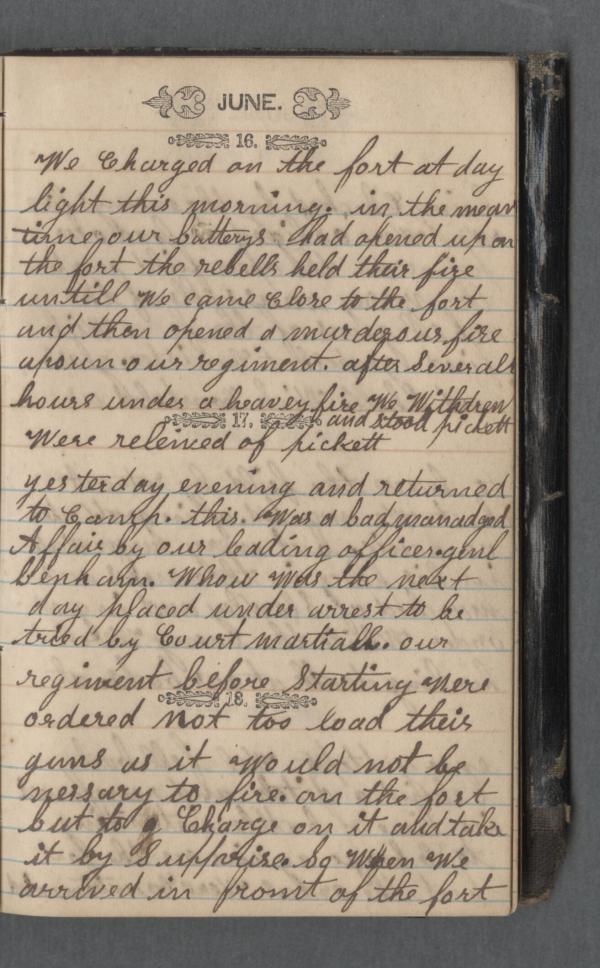 JUNE.
16.
We Charged on the fort at day
light this morning. in the mean
time our batterys had opened up on
the fort the rebells held their fire
untill We came Close to the fort
and then opened a murderous fire
apoun our regiment. after Severall
hours under a heavey fire We Withdrew
17. and stood pickett
Were releiced of pickett
yesterday evening and returned
to Camp. this. Was a bad managed
Affair by our leading officer. genl
Benham. Whow Was the next
day placed under arrest to be
tried by Court martiall. our
regiment before Starting Were
18.
ordered Not too load their
guns as it Would not be
nessary to fire. on the fort
but to g Charge on it and take
it by Supprise. so When We
arrived in front of the fort